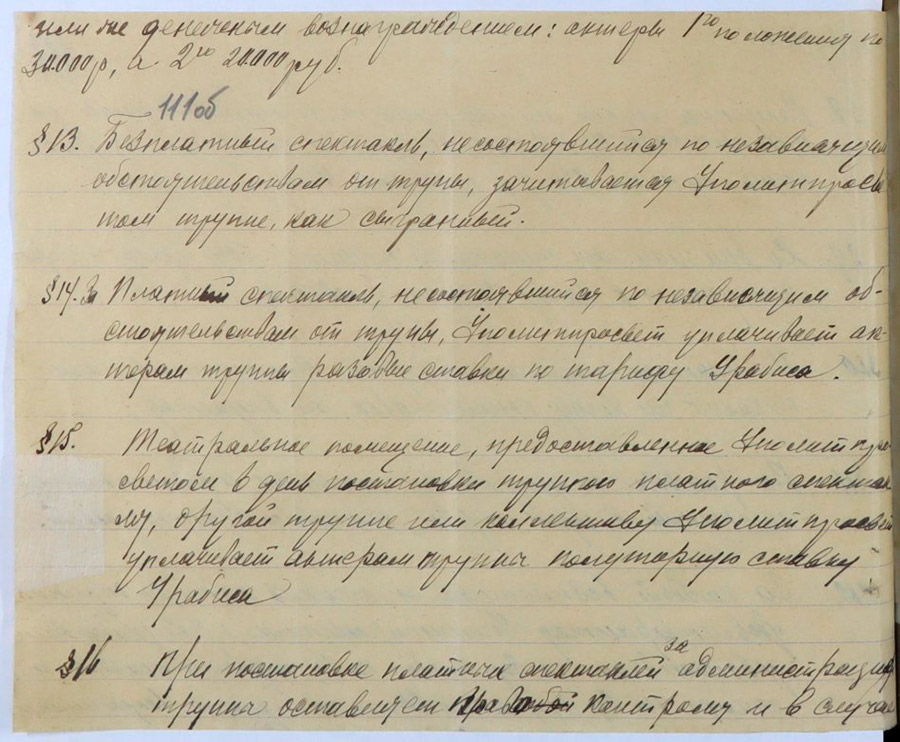 или же денежным вознаграждением: актеры 1го положения по
30.000 р, а 2го 20.000 руб.
111об
§13. Безплатный спектакль, несостоявшийся по независящим
обстоятельствам от трупы, зачитывается Уполитпросве
том труппе, как сыгранный.
§14. За Платный спектакль, несостоявшийся по независящим об-
стоятельствам от трупы, Уполитпросвет уплачивает ак-
терам труппы разовые ставки по тарифу Урабиса.
§15. Театральное помещение, предоставленное Уполитпро-
светом в день постановки труппою платного спектак
лу, другой труппе или коллективу Уполитпросвет
уплачивает актерам труппы полуторную ставку
Урабиса
§16 При постановке платных спектаклей за администрацию
труппа оставляет контролу и в случае